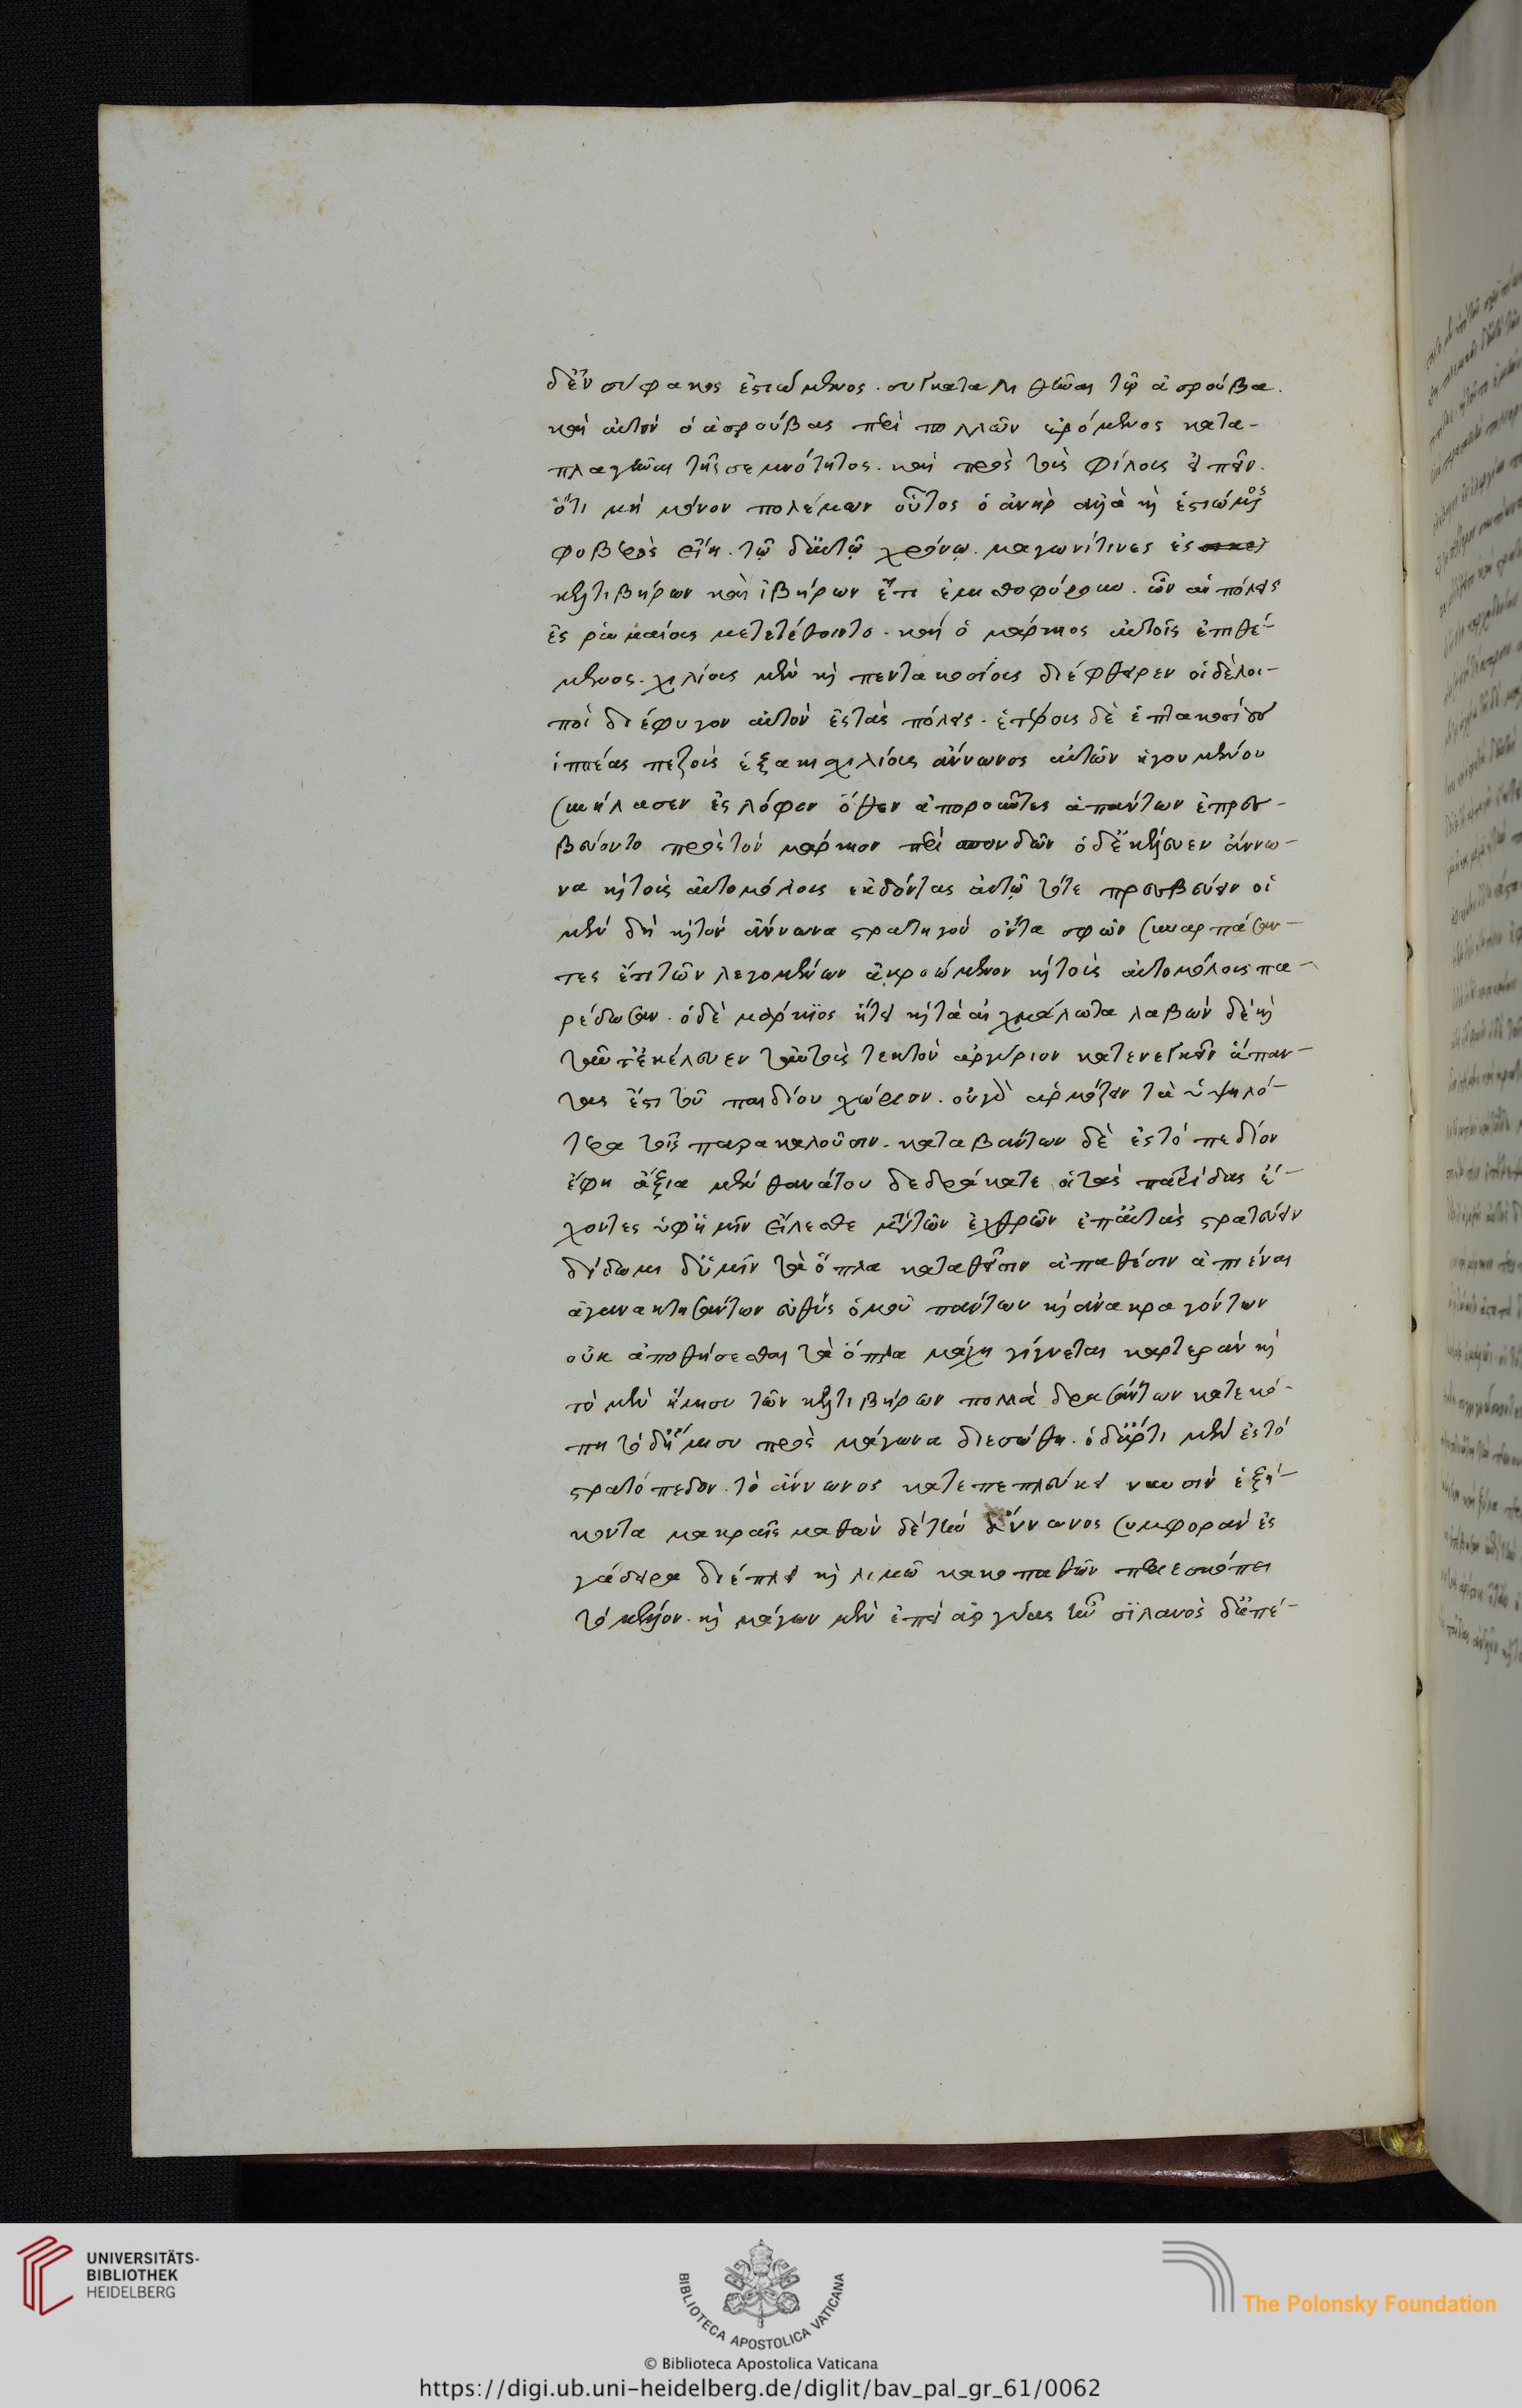 δ' ἐν σύφακος ἑστιώμενος. συγκατακλιθῶαι τῷ ἀσρούβα.
καὶ αὐτὸν ὁ ἀσρούβας περὶ πολλῶν εἰρόμενος κατα-
πλαγῶαι τῆς σεμνότητος. καὶ πρὸς τοὺς φίλους εἰπεῖν.
ὅτι μὴ μόνον πολέμων οὗτος ὁ ἀνὴρ ἀλλὰ κὴ ἑστιώμενος
φοβερὸς εἴη. τῷ δ' αὐτῷ χρόνῳ. μάγωνί τινες ἐς
κελτιβήρων καὶ ἰβήρων ἔτι ἐμισθοφόρουν. ὧν αἱ πόλεις
ἐς ῥωμαίους μετετέθοιντο. καὶ ὁ μάρκιος αὐτοῖς ἐπιθέ-
μενος. χιλίους μὲν κὴ πεντακοσίους διέφθειρεν οἱ δὲ λοι-
ποὶ διέφυγον αὐτὸν ἐς τὰς πόλεις. ἑτέρους δὲ ἑπτακοσίους
ἱππέας πεζοὺς ἑξακισχιλίους ἄννωνος αὐτῶν ἡγουμένου
συνήλασεν ἐς λόφον ὅθεν ἀποροῦντες ἁπάντων ἐπρεσ-
βεύοντο πρὸς τὸν μάρκιον περὶ σπονδῶν ὁ δ' ἐκέλευεν ἄννω-
να κὴ τοὺς αὐτομόλους ἐκδόντας αὐτῷ τότε πρεσβεύειν οἱ
μὲν δὴ κὴ τὸν ἄννωνα στρατηγὸν ὄντα σφῶν συναρπάσαν-
τες ἔτι τῶν λεγομένων ἀκροώμενον κὴ τοὺς αὐτομόλους πα-
ρέδωσαν. ὁ δὲ μάρκιος ᾔτει κὴ τὰ αἰχμάλωτα λαβὼν δὲ κὴ
ταῦτ' ἐκέλευεν αὐτοὺς τακτὸν ἀργύριον κατενεγκεῖν ἅπαν-
τας ἔς τι τοῦ παιδίου χωρίον. οὐ γὰρ ἁρμόζειν τὰ ὑψηλό-
τερα τοῖς παρακαλοῦσιν. καταβάντων δὲ ἐς τὸ πεδίον
ἔφη ἄξια μὲν θανάτου δεδράκατε οἳ τὰς πατρίδας ἔ-
χοντες ὑφ' ἡμῖν εἵλεσθε μετὰ τῶν ἐχθρῶν ἐπ' αὐτὰς στρατεύειν
δίδωμι δ' ὑμῖν τὰ ὅπλα καταθεῖσιν ἀπαθέσιν ἀπιέναι
ἀγανακτησάντων εὐθὺς ὁμοῦ πάντων κὴ ἀνακραγόντων
οὐκ ἀποθήσεσθαι τὰ ὅπλα μάχη γίγνεται καρτερὰν κὴ
τὸ μὲν ἥμισυ τῶν κελτιβήρων πολλὰ δρασάντων κατεκό-
πη τὸ δ' ἥμισυ πρὸς μάγωνα διεσώθη. ὁ δ' ἄρτι μὲν ἐς τὸ
στρατόπεδον τὸ ἄννωνος κατεπεπλεύκει ναυσὶν ἑξή-
κοντα μακραῖς μαθὼν δὲ τὴν ἄννωνος συμφορὰν ἐς
γάδειρα διέπλει κὴ λιμῷ κακοπαθῶν περιεσκόπει
τὸ μέλλον. κὴ μάγων μὲν ἐπὶ ἀργίας ἦν σιλανὸς δ' ἀπέ-
UNIVERSITÄTS-
BIBLIOTHEK
HEIDELBERG
BIBLIOTECA APOSTOLICA VATICANA
© Biblioteca Apostolica Vaticana
The Polonsky Foundation
https://digi.ub.uni-heidelberg.de/diglit/bav_pal_gr_61/0062